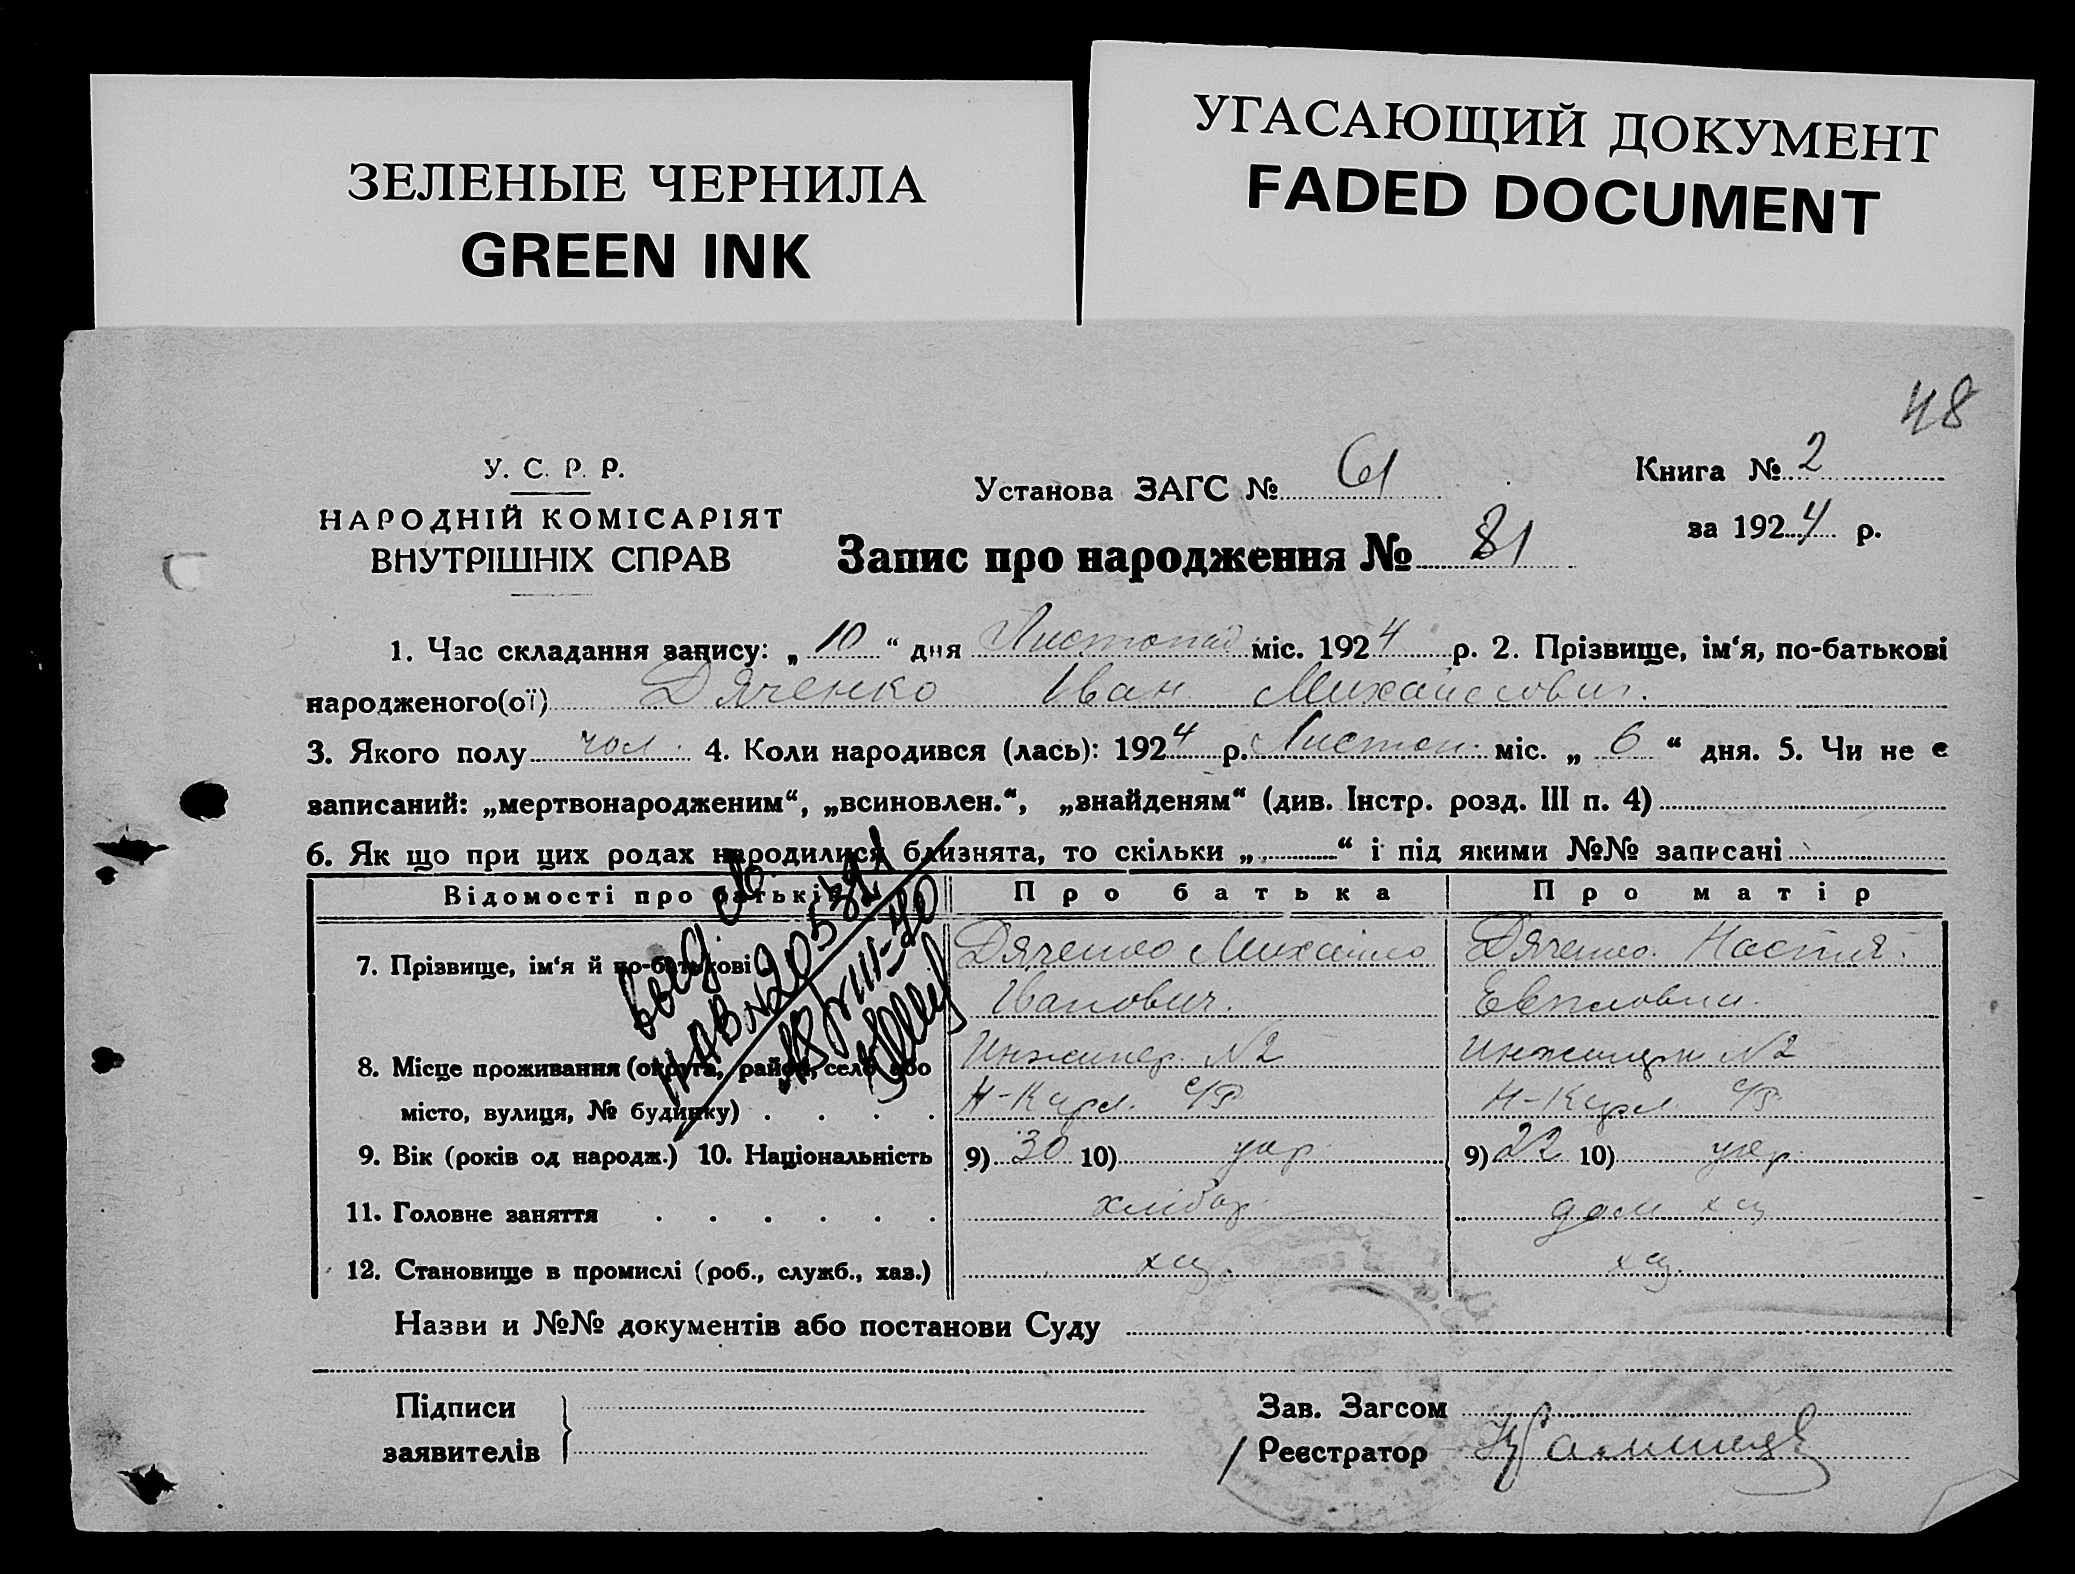 ЗЕЛЕНЫЕ ЧЕРНИЛА
GREEN INK
УГАСАЮЩИЙ ДОКУМЕНТ
FADED DOCUMENT
48
У. С. Р. Р.
НАРОДНІЙ КОМІСАРІЯТ
ВНУТРІШНІХ СПРАВ
Установа ЗАГС № 61
Книга № 2
за 1924 р.
Запис про народження № 81
1. Час складання запису: „ 10 “ дня Листопад міс. 1924 р. 2. Прізвище, ім‘я, по-батькові
народженого(ої) Дяченко Іван Михайлович.
3. Якого полу чол. 4. Коли народився (лась): 1924 р. Листоп. міс. „ 6 “ дня. 5. Чи не є
записаний: „мертвонародженим“, „всиновлен.“, „знайденям“ (див. Інстр. розд. III п. 4)
6. Як що при цих родах народилися близнята, то скільки „ “ і під якими №№ записані
Відомості про батьків Про батька Про матір
7. Прізвище, ім‘я й по-батькові Дяченко Михайло Дяченко Настя
Іванович.
8. Місце проживання (округа, район, село або Инженер. №2 №2
місто, вулиця, № будинку) Н-Карл. Н-Карл.
9. Вік (років од народж.) 10. Національність 9) 30 10) укр 9) 22 10) укр
11. Головне заняття хлібор дом
12. Становище в промислі (роб., служб., хаз.)
Назви и №№ документів або постанови Суду
Підписи
заявителів
Зав. Загсом
Реєстратор